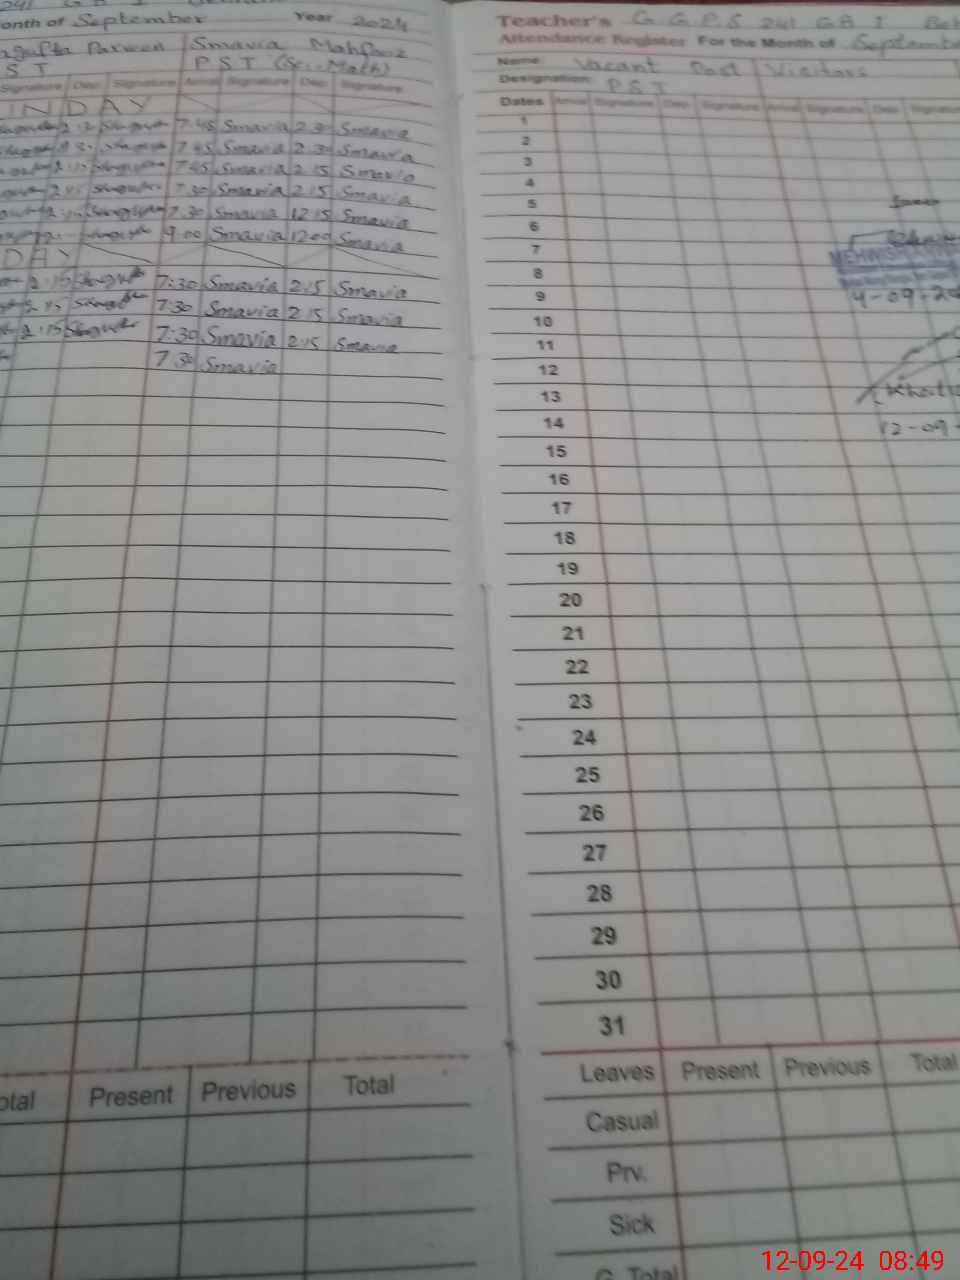 onth of September Year 2024
Parveen Smavia Mahfooz
S T P S T (Sci-Math)
Signature Dep: Signature Arrival Signature Dep: Signature
I N D A Y
7.45 Smavia 2.30 Smavia
7.45 Smavia 2.30 Smavia
7.45 Smavia 2.15 Smavia
7.30 Smavia 2.15 Smavia
7.30 Smavia 12.15 Smavia
9.00 Smavia 12.00 Smavia
D A Y
2.15 7:30 Smavia 2.15 Smavia
2.15 7:30 Smavia 2.15 Smavia
2.15 7:30 Smavia 2.15 Smavia
7.30 Smavia
otal Present Previous Total
Teacher's G G P S 241 G B I
Attendance Register For the Month of Septemb
Name: Vacant Post Visitors
Designation: P S T
Dates Arrival Signature Dep: Signature Arrival Signature Dep: Signature
1
2
3
4
5
6
7
8
9
10
11
12
13
14
15
16
17
18
19
20
21
22
23
24
25
26
27
28
29
30
31
4-09-24
12-09-
Leaves Present Previous Total
Casual
Prv.
Sick
G. Total
12-09-24 08:49